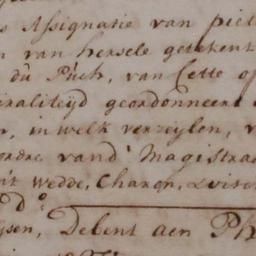 Assignatie van piet
van hersele getekent
du Puch, van Cette op
iraliteyd geordonneert
in welk verzeylen, v
ordre vand' Magistraa
wedde, Charen,
Debent aen Ph